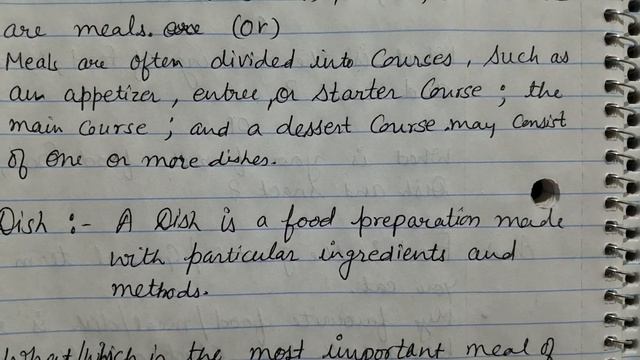 are meals. (Or)
Meals are often divided into Courses, Such as
am appetizer, entree, or Starter Course ; the
main Course ; and a dessert Course. may Consist
Of One or more dishes.
Dish :- A Dish is a food preparation made
with particular ingredients and
methods.
What/which is the most important meal of